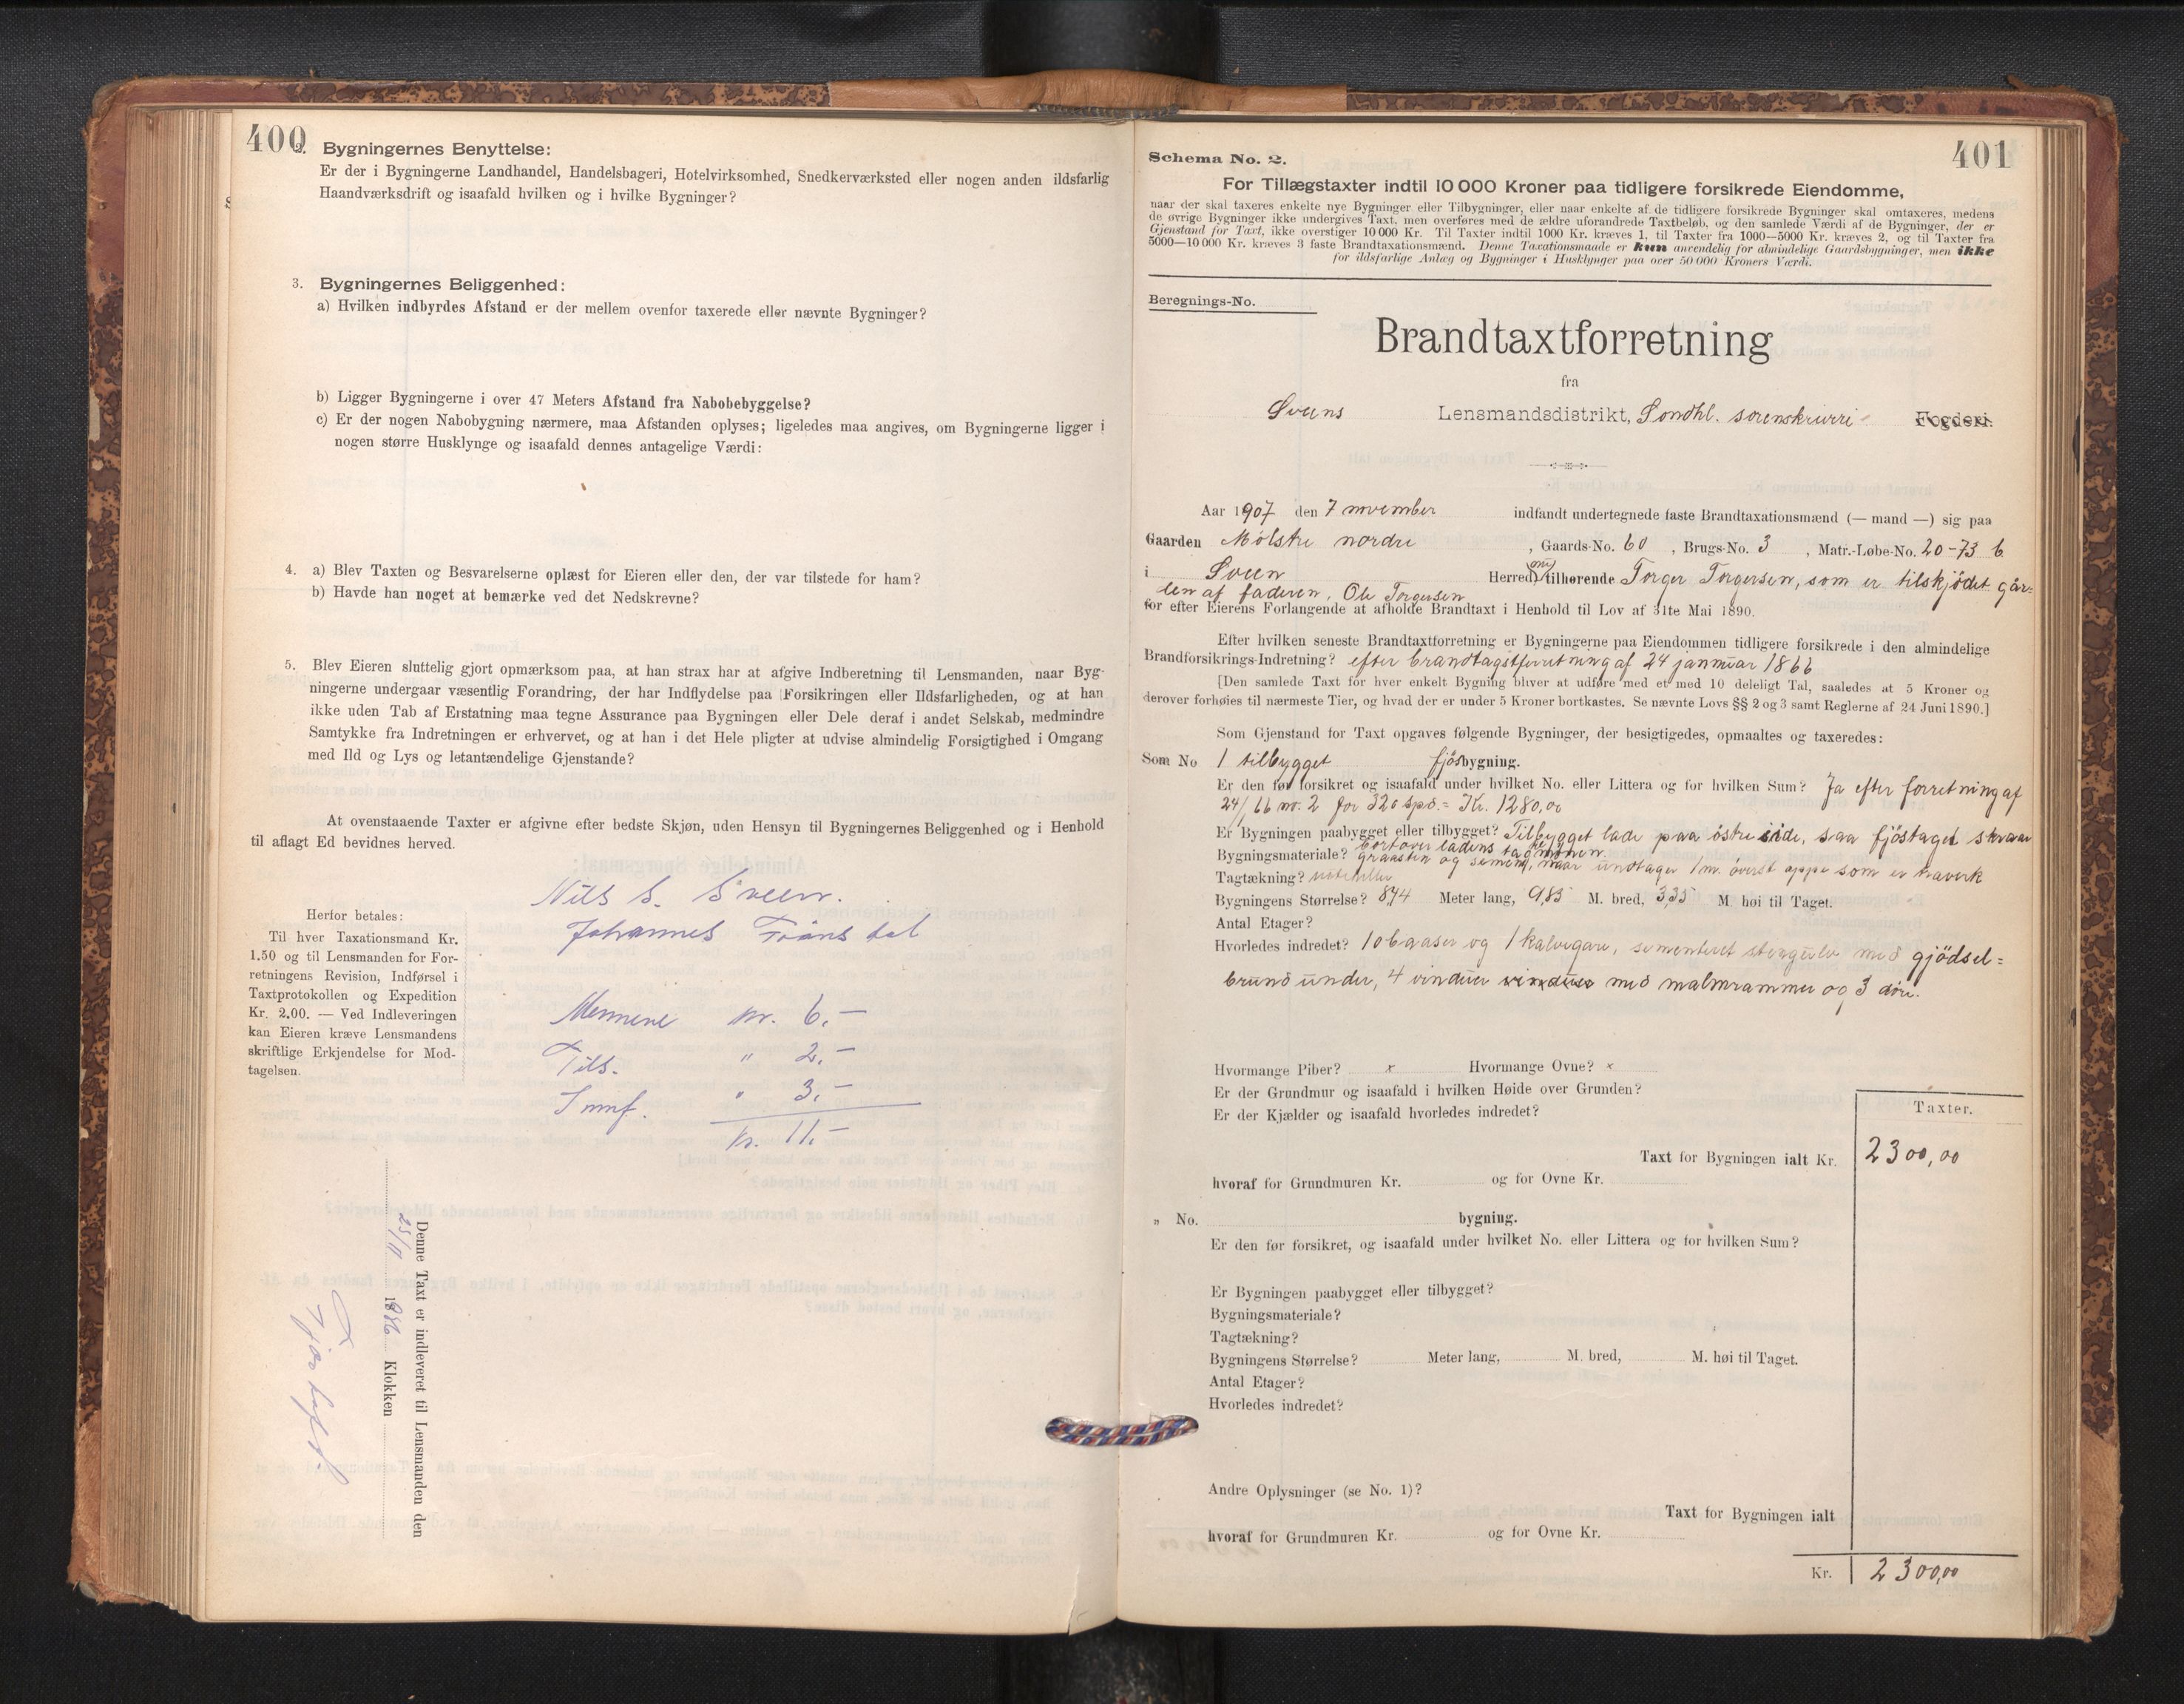 400
2. Bygningernes Benyttelse:
Er der i Bygningerne Landhandel, Handelsbageri, Hotelvirksomhed, Snedkerværksted eller nogen anden ildsfarlig
Haandværksdrift og isaafald hvilken og i hvilke Bygninger?
3. Bygningernes Beliggenhed:
a) Hvilken indbyrdes Afstand er der mellem ovenfor taxerede eller nævnte Bygninger?
b) Ligger Bygningerne i over 47 Meters Afstand fra Nabobebyggelse?
c) Er der nogen Nabobygning nærmere, maa Afstanden oplyses; ligeledes maa angives, om Bygningerne ligger i
nogen større Husklynge og isaafald dennes antagelige Værdi:
4. a) Blev Taxten og Besvarelserne oplæst for Eieren eller den, der var tilstede for ham?
b) Havde han noget at bemærke ved det Nedskrevne?
5. Blev Eieren sluttelig gjort opmærksom paa, at han strax har at afgive Indberetning til Lensmanden, naar Byg-
ningerne undergaar væsentlig Forandring, der har Indflydelse paa Forsikringen eller Ildsfarligheden, og at han
ikke uden Tab af Erstatning maa tegne Assurance paa Bygningen eller Dele deraf i andet Selskab, medmindre
Samtykke fra Indretningen er erhvervet, og at han i det Hele pligter at udvise almindelig Forsigtighed i Omgang
med Ild og Lys og letantændelige Gjenstande?
At ovenstaaende Taxter er afgivne efter bedste Skjøn, uden Hensyn til Bygningernes Beliggenhed og i Henhold
til aflagt Ed bevidnes herved.
Nils S. Sveen.
Johannes
Herfor betales:
Til hver Taxationsmand Kr.
1.50 og til Lensmanden for For-
retningens Revision, Indførsel i
Taxtprotokollen og Expedition
Kr. 2.00. — Ved Indleveringen
kan Eieren kræve Lensmandens
skriftlige Erkjendelse for Mod-
tagelsen.
Mennene kr. 6.-
Tils. " 2.-
" 3.-
kr. 11.-
Denne Taxt er indleveret til Lensmanden den
25/11 Klokken
401
Schema No. 2.
For Tillægstaxter indtil 10 000 Kroner paa tidligere forsikrede Eiendomme,
naar der skal taxeres enkelte nye Bygninger eller Tilbygninger, eller naar enkelte af de tidligere forsikrede Bygninger skal omtaxeres, medens
de øvrige Bygninger ikke undergives Taxt, men overføres med de ældre uforandrede Taxtbeløb, og den samlede Værdi af de Bygninger, der er
Gjenstand for Taxt, ikke overstiger 10 000 Kr. Til Taxter indtil 1000 Kr. kræves 1, til Taxter fra 1000—5000 Kr. kræves 2, og til Taxter fra
5000—10 000 Kr. kræves 3 faste Brandtaxationsmænd. Denne Taxationsmaade er kun anvendelig for almindelige Gaardsbygninger, men ikke
for ildsfarlige Anlæg og Bygninger i Husklynger paa over 50 000 Kroners Værdi.
Beregnings-No.
Brandtaxtforretning
fra
Sveens Lensmandsdistrikt, Søndhl. sorenskriveri Fogderi.
Aar 1907 den 7 november indfandt undertegnede faste Brandtaxationsmænd (— mand —) sig paa
Gaarden Mølstre nordre, Gaards-No. 60, Brugs-No. 3, Matr.-Løbe-No. 20-73 b
i Sveen Herred, tilhørende Torger Torgersen, som er tilskjødet går-
den af faderen, Ole Torgersen
for efter Eierens Forlangende at afholde Brandtaxt i Henhold til Lov af 31te Mai 1890.
Efter hvilken seneste Brandtaxtforretning er Bygningerne paa Eiendommen tidligere forsikrede i den almindelige
Brandforsikrings-Indretning? efter brandtagstforretning af 24 januar 1866
[Den samlede Taxt for hver enkelt Bygning bliver at udføre med et med 10 deleligt Tal, saaledes at 5 Kroner og
derover forhøies til nærmeste Tier, og hvad der er under 5 Kroner bortkastes. Se nævnte Lovs §§ 2 og 3 samt Reglerne af 24 Juni 1890.]
Som Gjenstand for Taxt opgaves følgende Bygninger, der besigtigedes, opmaaltes og taxeredes:
Som No 1 tilbygget fjøsbygning.
Er den før forsikret og isaafald under hvilket No. eller Littera og for hvilken Sum? Ja efter forretning af
24/1 66 no. 2 for 320 spd. = Kr. 1280,00
Er Bygningen paabygget eller tilbygget? Tilbygget lade paa østre side, saa fjøstaget skraar
bortover ladens tag
Bygningsmateriale? graasten og sement, naar undtager 1 m. øverst oppe som er
Tagtækning?
Bygningens Størrelse? 8,74 Meter lang, 9,85 M. bred, 3,35 M. høi til Taget.
Antal Etager?
Hvorledes indredet? 10 baaser og 1 kalvegare, sementeret stengulv med gjødsel=
brund under, 4 vinduer vinduer med malmrammer og 3 døre.
Hvormange Piber? x Hvormange Ovne? x
Er der Grundmur og isaafald i hvilken Høide over Grunden?
Er der Kjælder og isaafald hvorledes indredet?
Taxter.
Taxt for Bygningen ialt Kr. 2300,00
hvoraf for Grundmuren Kr. og for Ovne Kr.
" No. bygning.
Er den før forsikret, og isaafald under hvilket No. eller Littera og for hvilken Sum?
Er Bygningen paabygget eller tilbygget?
Bygningsmateriale?
Tagtækning?
Bygningens Størrelse? Meter lang, M. bred, M. høi til Taget.
Antal Etager?
Hvorledes indredet?
Andre Oplysninger (se No. 1)?
Taxt for Bygningen ialt
hvoraf for Grundmuren Kr. og for Ovne Kr.
Kr. 2300,00